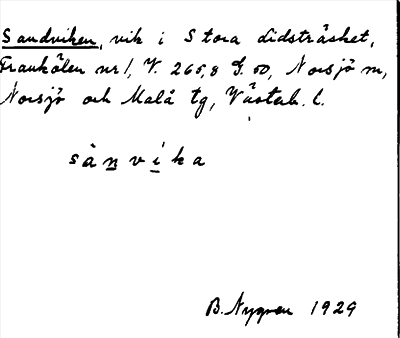 Sandviken, vik i Stora Lidsträsket,
Fraukälen nr 1, V. 265,8 G. 50, Norsjö sn,
Norsjö och Malå tg, Västerb. l.
sànvíka
B. Nygren 1929